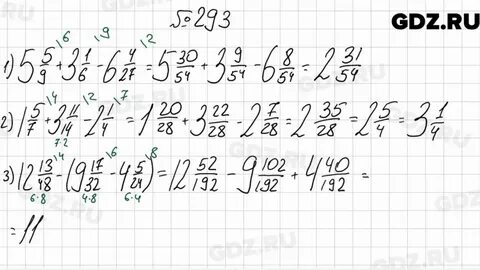 GDZ.RU
№ 293
1) 5 5/9 + 3 1/6 - 6 4/27 = 5 30/54 + 3 9/54 - 6 8/54 = 2 31/54
\6 \9 \2
2) 1 5/7 + 3 11/14 - 2 1/4 = 1 20/28 + 3 22/28 - 2 7/28 = 2 35/28 = 2 5/4 = 3 1/4
\4 \2 \7
7·2
3) 12 13/48 - (9 17/32 - 4 5/24) = 12 52/192 - 9 102/192 + 4 40/192 =
\4 \6 \8
6·8 4·8 6·4
= 11
GDZ.RU